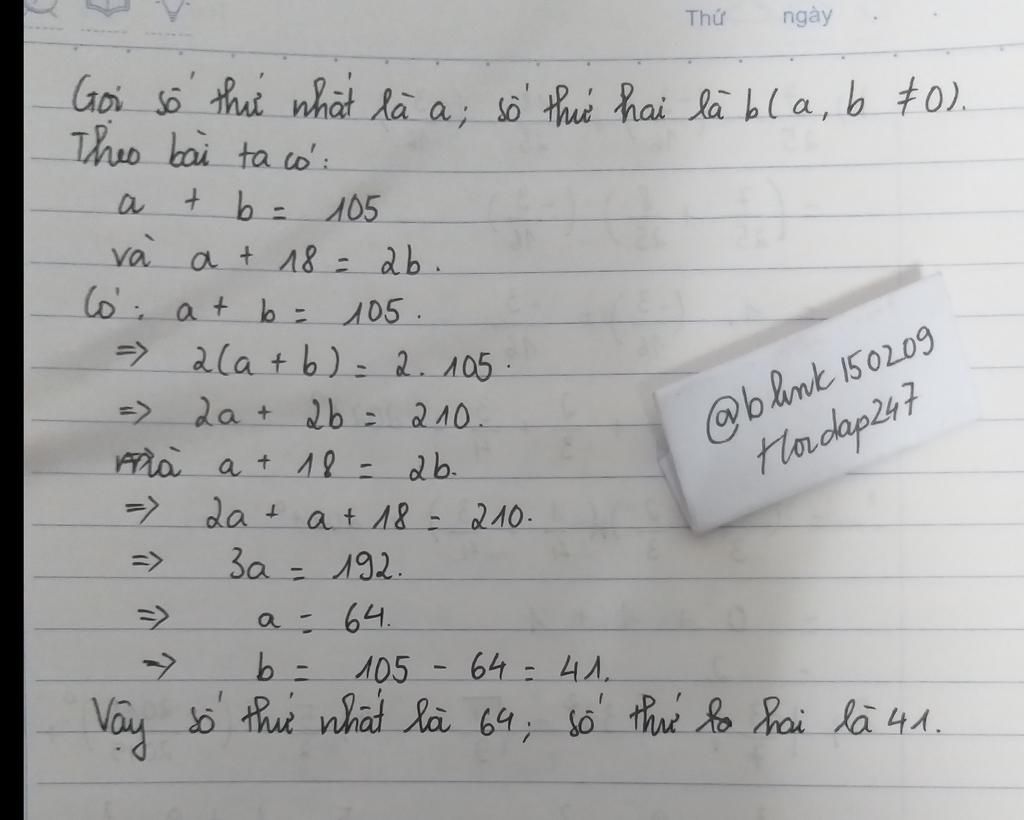 Thứ ngày
Gọi số thứ nhất là a; số thứ hai là b (a, b ≠ 0).
Theo bài ta có:
a + b = 105
và a + 18 = 2b.
Có: a + b = 105.
=> 2(a + b) = 2. 105.
=> 2a + 2b = 210.
mà a + 18 = 2b.
=> 2a + a + 18 = 210.
=> 3a = 192.
=> a = 64.
=> b = 105 - 64 = 41.
Vậy số thứ nhất là 64; số thứ hai là 41.
@blink150209
hoidap247